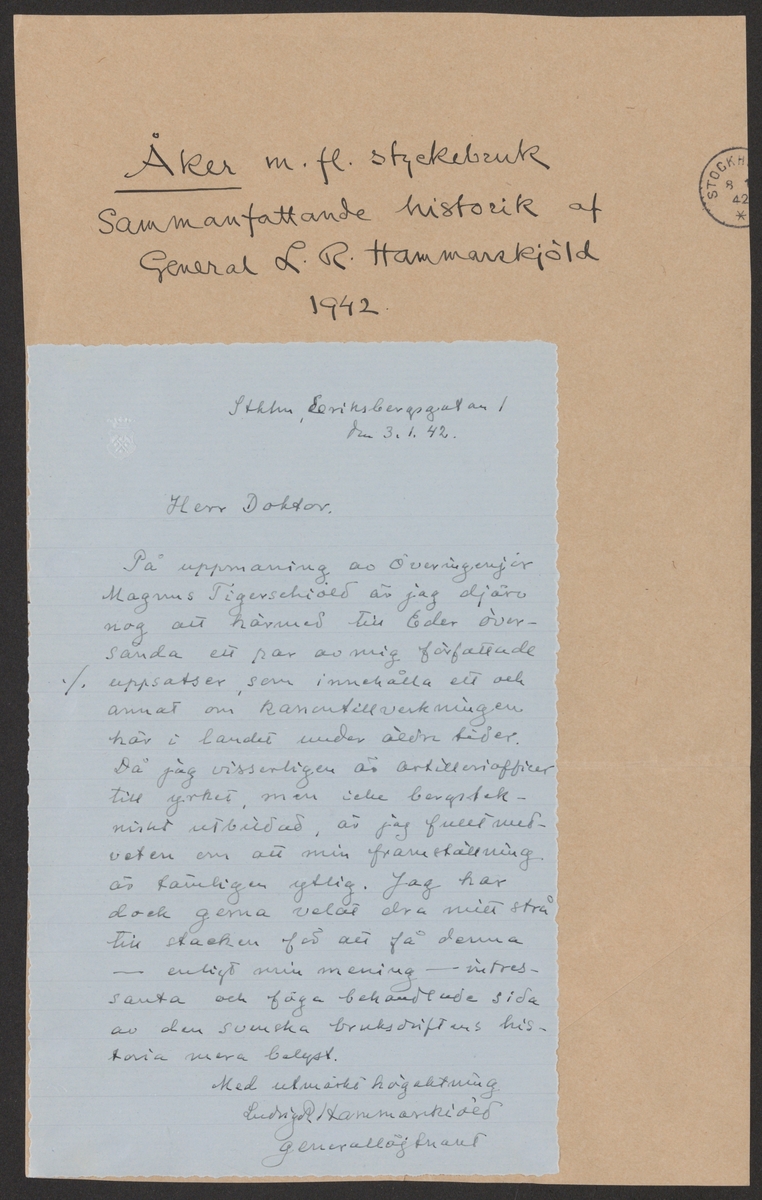 Åker m. fl. styckebruk
Sammanfattande historik af
General L. R. Hammarskjöld
1942.
STOCKH
8 1
42
*
Sthlm, Eriksbergsgatan 1
den 3.1.42.
Herr Doktor.
På uppmaning av Överingenjör
Magnus Tigerschiöld är jag djärv
nog att härmed till Eder över-
sända ett par av mig författade
·/. uppsatser, som innehålla ett och
annat om kanontillverkningen
här i landet under äldre tider.
Då jag visserligen är artilleriofficer
till yrket, men icke bergstek-
niskt utbildad, är jag fullt med-
veten om att min framställning
är tämligen ytlig. Jag har
dock gerna velat dra mitt strå
till stacken för att få denna
— enligt min mening — intres-
santa och föga behandlade sida
av den svenska bruksdriftens his-
toria mera belyst.
Med utmärkt högaktning
Ludvig R Hammarskiöld
generallöjtnant